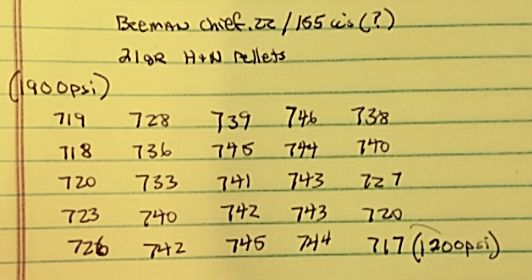 Beeman Chief .22/165 cc's (?)
21gr H+N Pellets
(1900psi)
719 728 739 746 738
718 736 745 744 740
720 733 741 743 727
723 740 742 743 720
726 742 745 744 717 (1200psi)